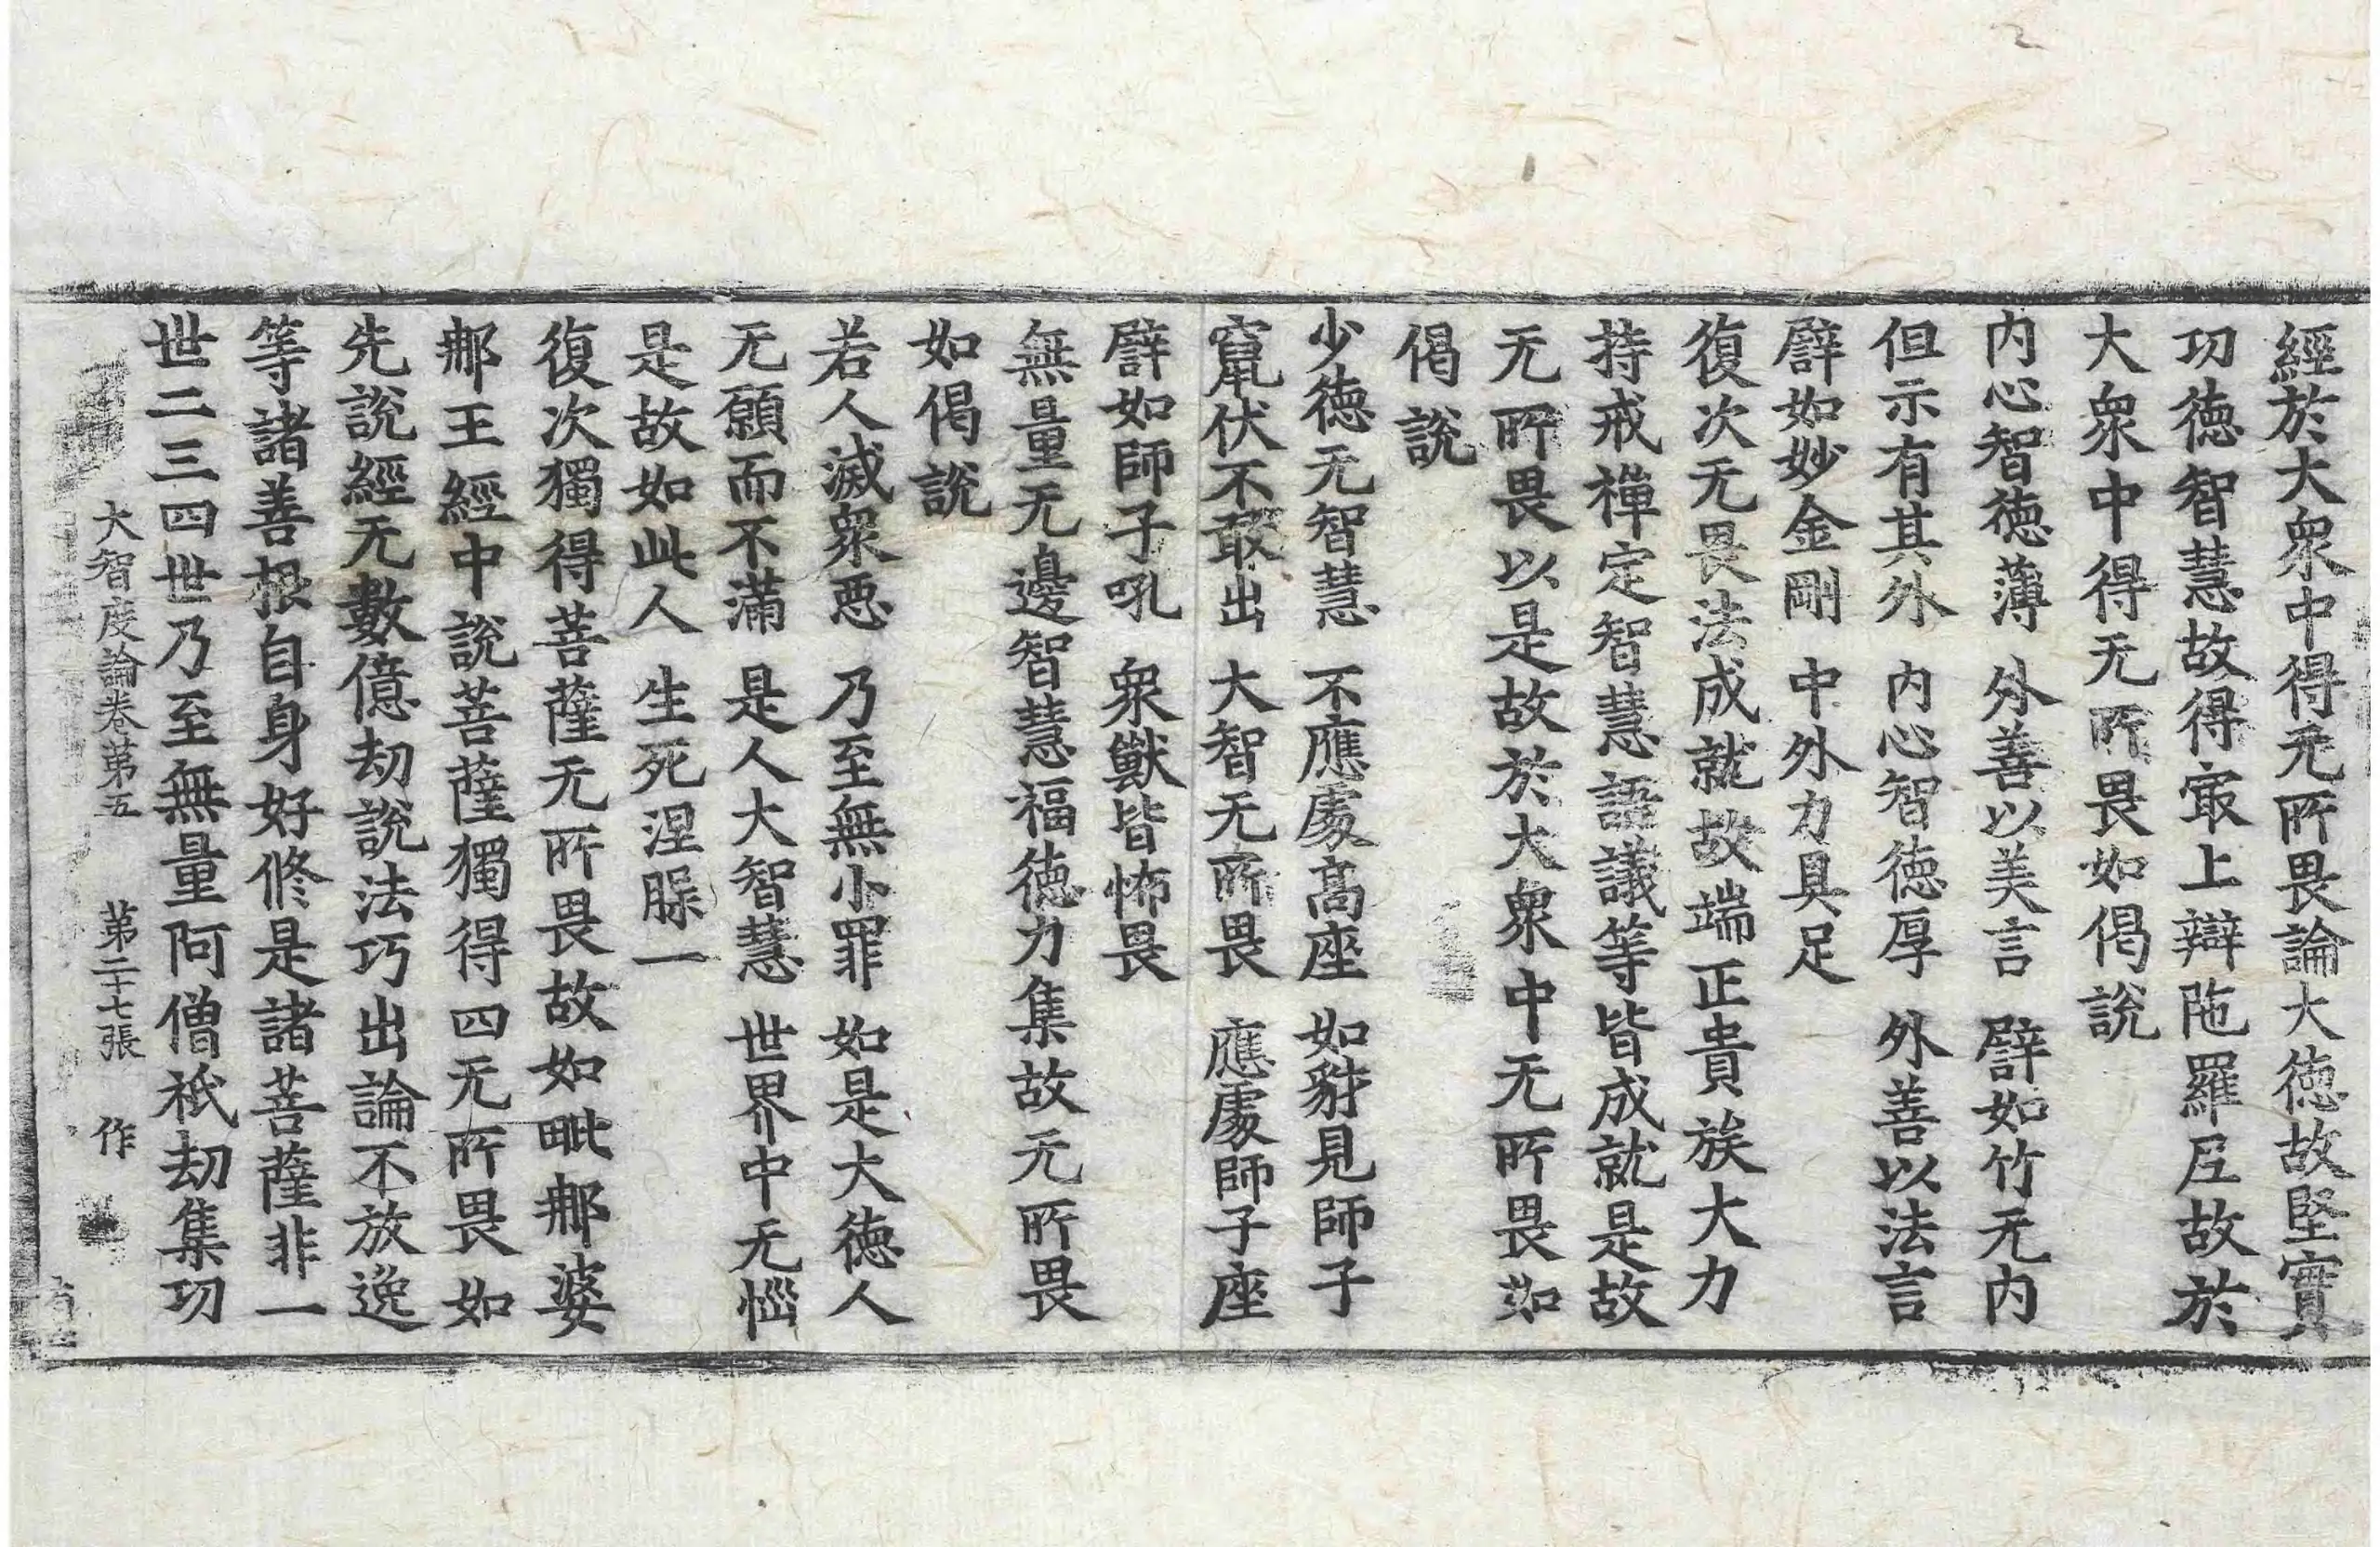 經於大衆中得无所畏論大徳故堅實
功徳智慧故得㝡上辯陁羅尼故於
大衆中得无所畏如偈說
内心智徳薄　外善以美言　譬如竹无内
但示有其外　内心智徳厚　外善以法言
譬如妙金剛　中外力具足
復次无畏法成就故端正貴族大力
持戒禪定智慧語議等皆成就是故
无所畏以是故於大衆中无所畏如
偈說
少徳无智慧　不應處髙座　如豺見師子
竄伏不敢出　大智无所畏　應處師子座
譬如師子吼　衆獸皆怖畏
無量无邊智慧福徳力集故无所畏
如偈說
若人滅衆惡　乃至無小罪　如是大徳人
无願而不滿　是人大智慧　世界中无惱
是故如此人　生死涅槃一
復次獨得菩薩无所畏故如毗那婆
那王經中說菩薩獨得四无所畏如
先說經无數億劫說法巧出論不放逸
等諸善根自身好修是諸菩薩非一
世二三四世乃至無量阿僧祇劫集功
大智度論卷第五　第二十七張　作